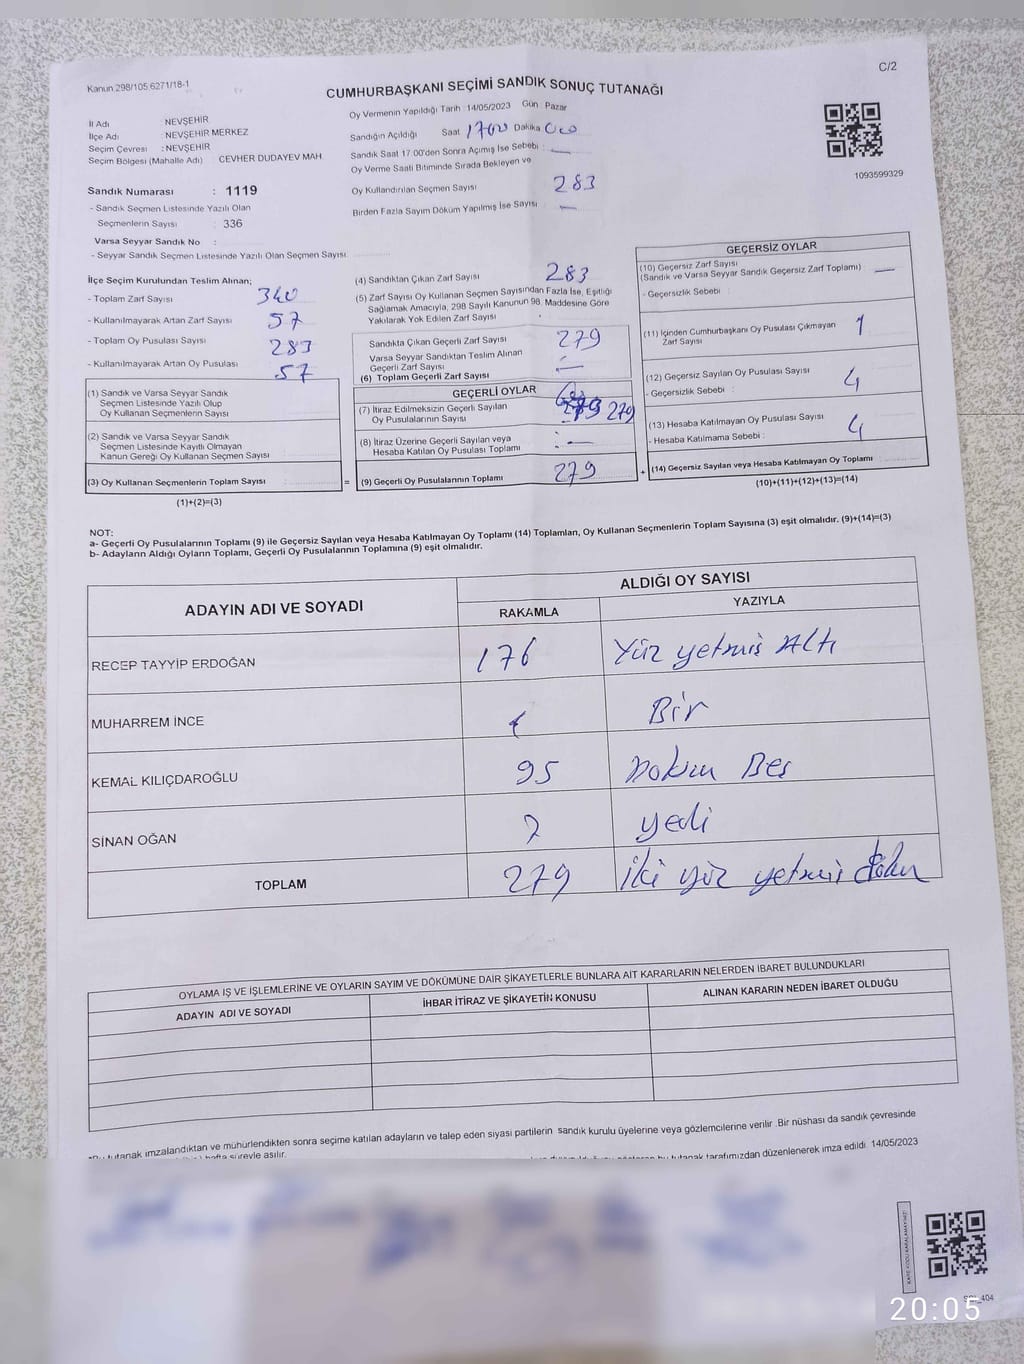 C/2
Kanun 298/105,6271/18-1
CUMHURBAŞKANI SEÇİMİ SANDIK SONUÇ TUTANAĞI
İl Adı : NEVŞEHİR
İlçe Adı : NEVŞEHİR MERKEZ
Seçim Çevresi : NEVŞEHİR
Seçim Bölgesi (Mahalle Adı) CEVHER DUDAYEV MAH.
Sandık Numarası : 1119
- Sandık Seçmen Listesinde Yazılı Olan
Seçmenlerin Sayısı : 336
Varsa Seyyar Sandık No :
- Seyyar Sandık Seçmen Listesinde Yazılı Olan Seçmen Sayısı
Oy Vermenin Yapıldığı Tarih : 14/05/2023 Gün : Pazar
Sandığın Açıldığı Saat 1700 Dakika 000
Sandık Saat 17.00'den Sonra Açılmış İse Sebebi : —
Oy Verme Saati Bitiminde Sırada Bekleyen ve
Oy Kullandırılan Seçmen Sayısı 283
Birden Fazla Sayım Döküm Yapılmış İse Sayısı —
1093599329
İlçe Seçim Kurulundan Teslim Alınan;
- Toplam Zarf Sayısı 340
- Kullanılmayarak Artan Zarf Sayısı 57
- Toplam Oy Pusulası Sayısı 283
- Kullanılmayarak Artan Oy Pusulası 57
(1) Sandık ve Varsa Seyyar Sandık
Seçmen Listesinde Yazılı Olup
Oy Kullanan Seçmenlerin Sayısı
(2) Sandık ve Varsa Seyyar Sandık
Seçmen Listesinde Kayıtlı Olmayan
Kanun Gereği Oy Kullanan Seçmen Sayısı
(3) Oy Kullanan Seçmenlerin Toplam Sayısı
(1)+(2)=(3)
=
(4) Sandıktan Çıkan Zarf Sayısı 283
(5) Zarf Sayısı Oy Kullanan Seçmen Sayısından Fazla İse, Eşitliği
Sağlamak Amacıyla, 298 Sayılı Kanunun 98. Maddesine Göre
Yakılarak Yok Edilen Zarf Sayısı
Sandıkta Çıkan Geçerli Zarf Sayısı 279
Varsa Seyyar Sandıktan Teslim Alınan
Geçerli Zarf Sayısı —
(6) Toplam Geçerli Zarf Sayısı
GEÇERLİ OYLAR
(7) İtiraz Edilmeksizin Geçerli Sayılan
Oy Pusulalarının Sayısı 279 279
(8) İtiraz Üzerine Geçerli Sayılan veya
Hesaba Katılan Oy Pusulası Toplamı : —
(9) Geçerli Oy Pusulalarının Toplamı 279
+
GEÇERSİZ OYLAR
(10) Geçersiz Zarf Sayısı
(Sandık ve Varsa Seyyar Sandık Geçersiz Zarf Toplamı) —
- Geçersizlik Sebebi :
(11) İçinden Cumhurbaşkanı Oy Pusulası Çıkmayan
Zarf Sayısı 1
(12) Geçersiz Sayılan Oy Pusulası Sayısı 4
- Geçersizlik Sebebi :
(13) Hesaba Katılmayan Oy Pusulası Sayısı 4
- Hesaba Katılmama Sebebi :
(14) Geçersiz Sayılan veya Hesaba Katılmayan Oy Toplamı
(10)+(11)+(12)+(13)=(14)
NOT:
a- Geçerli Oy Pusulalarının Toplamı (9) ile Geçersiz Sayılan veya Hesaba Katılmayan Oy Toplamı (14) Toplamları, Oy Kullanan Seçmenlerin Toplam Sayısına (3) eşit olmalıdır. (9)+(14)=(3)
b- Adayların Aldığı Oyların Toplamı, Geçerli Oy Pusulalarının Toplamına (9) eşit olmalıdır.
ADAYIN ADI VE SOYADI ALDIĞI OY SAYISI
RAKAMLA YAZIYLA
RECEP TAYYİP ERDOĞAN 176 Yüz yetmiş Altı
MUHARREM İNCE 1 Bir
KEMAL KILIÇDAROĞLU 95 Doksan Beş
SİNAN OĞAN 7 yedi
TOPLAM 279 iki yüz yetmiş dokuz
OYLAMA İŞ VE İŞLEMLERİNE VE OYLARIN SAYIM VE DÖKÜMÜNE DAİR ŞİKAYETLERLE BUNLARA AİT KARARLARIN NELERDEN İBARET BULUNDUKLARI
ADAYIN ADI VE SOYADI İHBAR İTİRAZ VE ŞİKAYETİN KONUSU ALINAN KARARIN NEDEN İBARET OLDUĞU
tutanak imzalandıktan ve mühürlendikten sonra seçime katılan adayların ve talep eden siyasi partilerin sandık kurulu üyelerine veya gözlemcilerine verilir. Bir nüshası da sandık çevresinde
hafta süreyle asılır.
bu tutanak tarafımızdan düzenlenerek imza edildi. 14/05/2023
KARE KODU KARALAMAYINIZ!
20:05